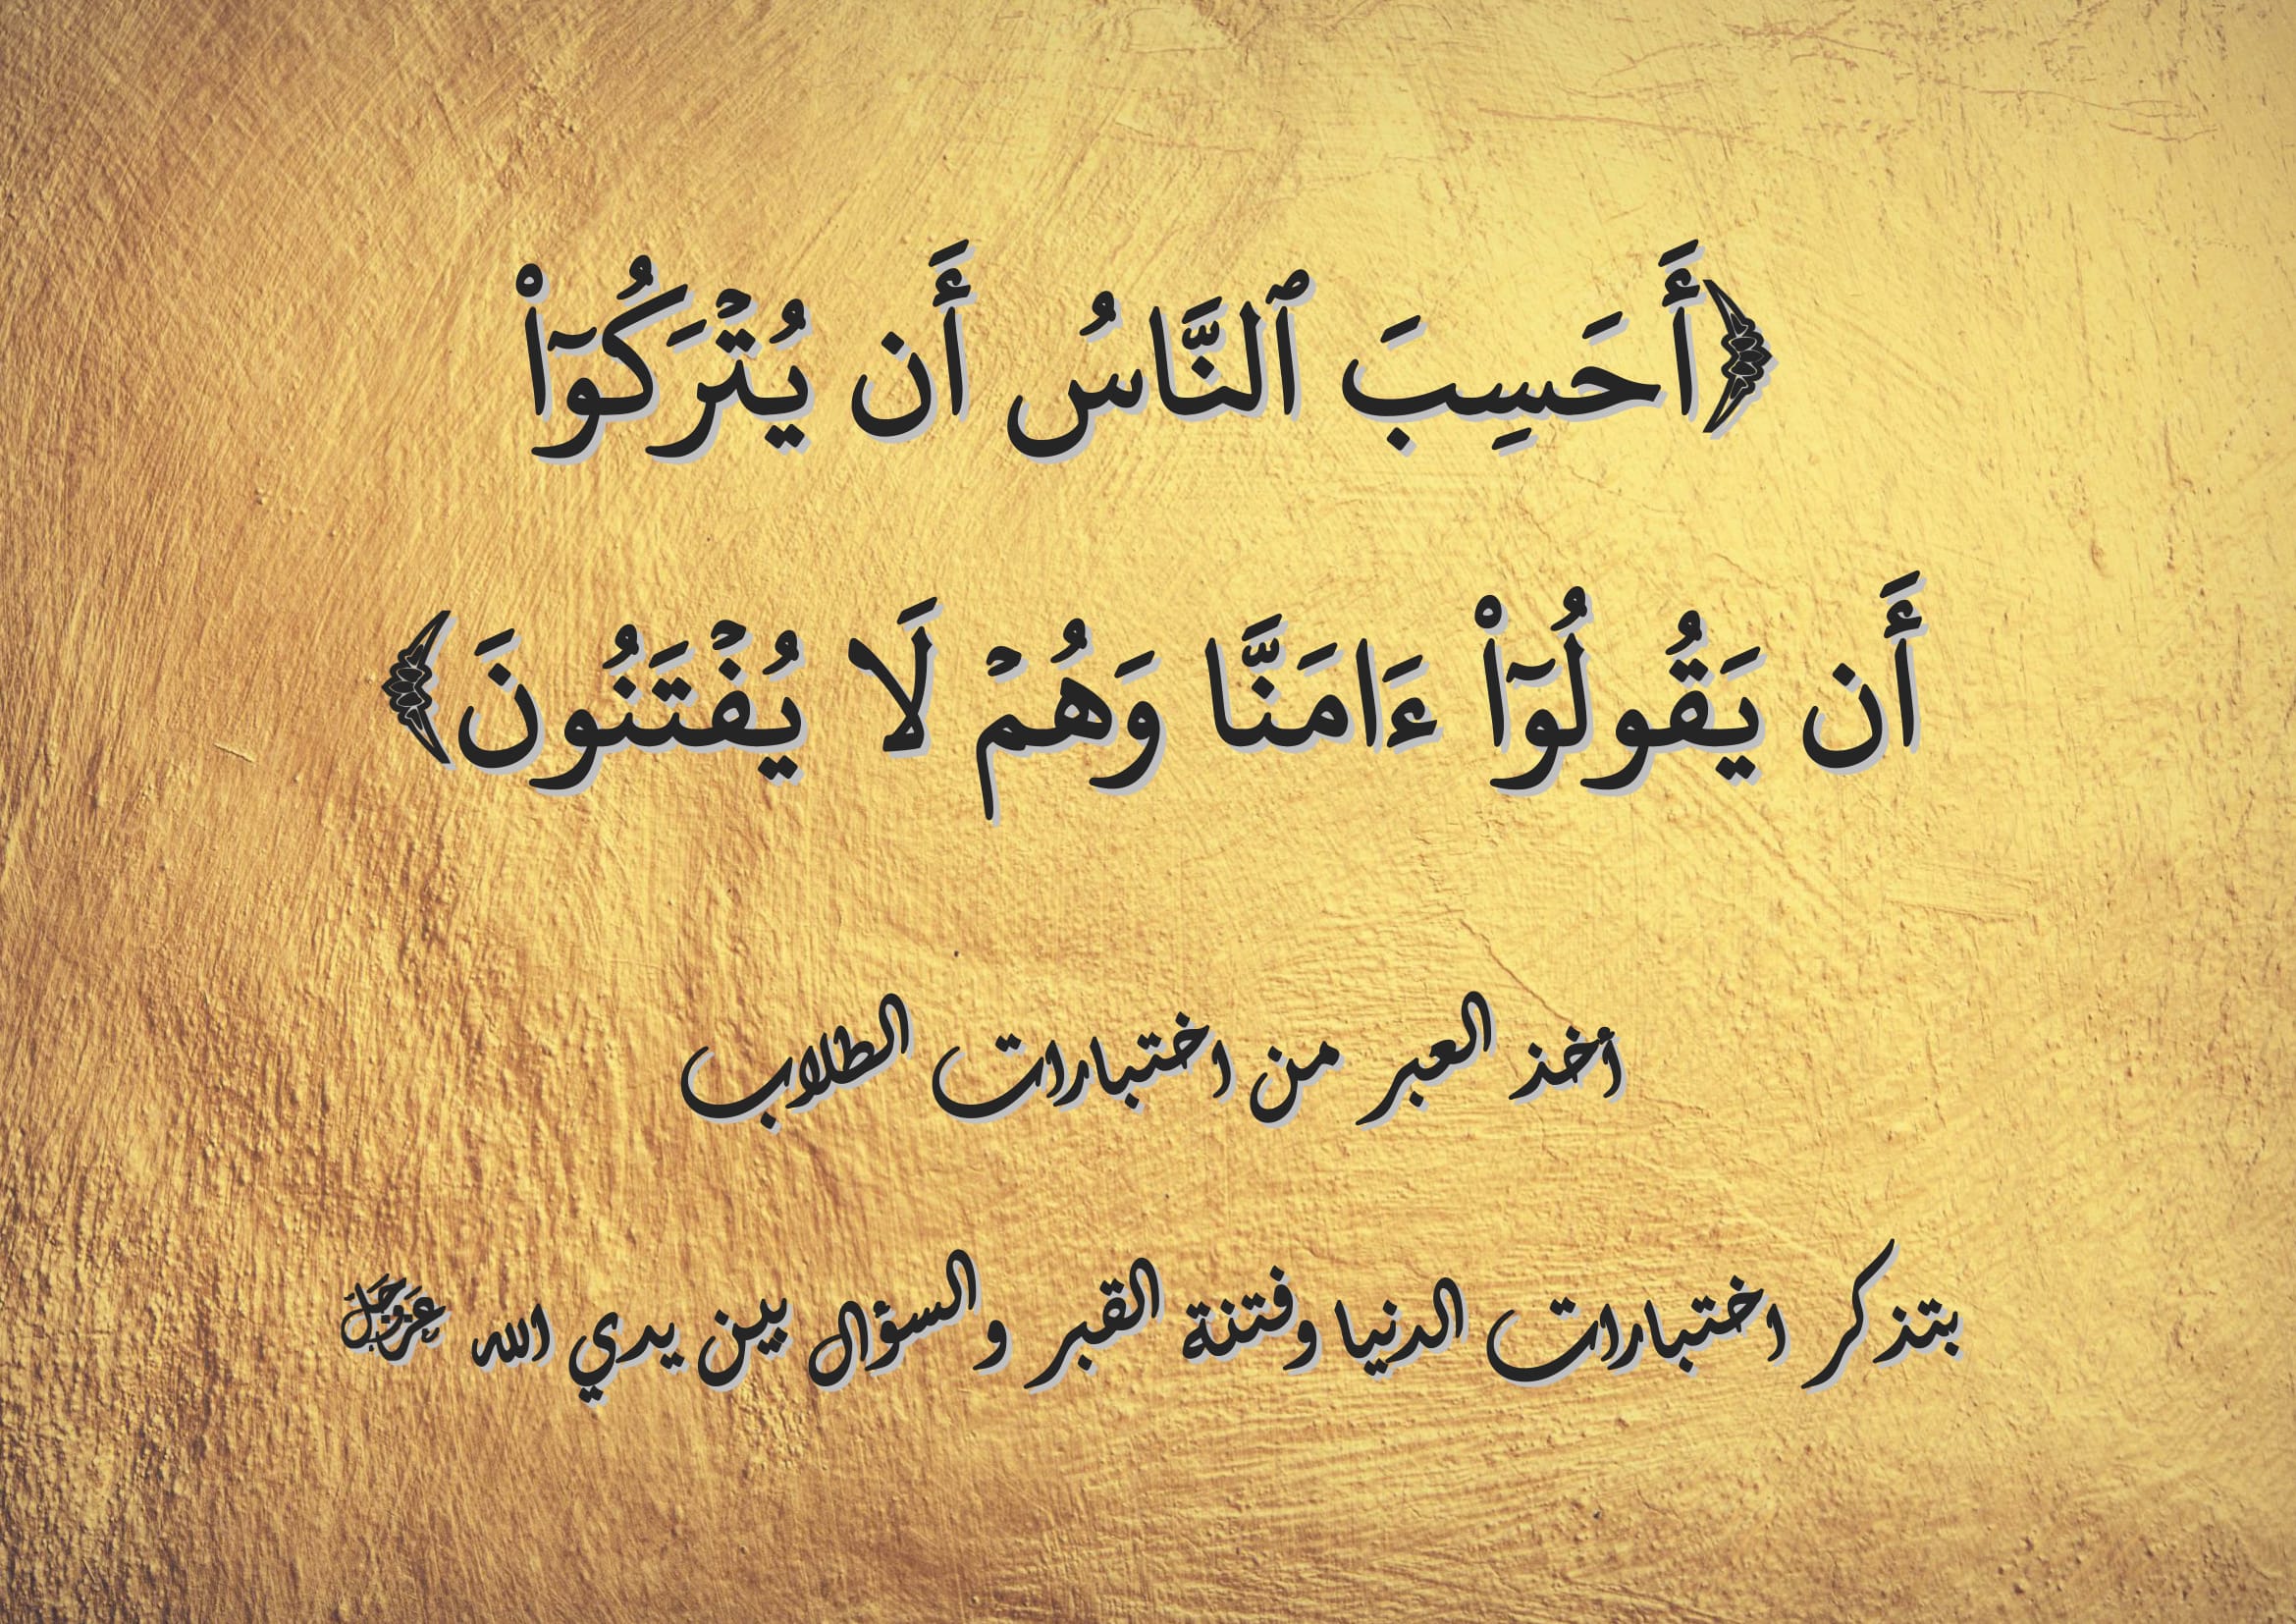 ﴿أَحَسِبَ ٱلنَّاسُ أَن يُتۡرَكُوٓاْ
أَن يَقُولُوٓاْ ءَامَنَّا وَهُمۡ لَا يُفۡتَنُونَ﴾
أخذ العبر من اختبارات الطلاب
بتذكر اختبارات الدنيا وفتنة القبر والسؤال بين يدي الله عَزَّوَجَلَّ